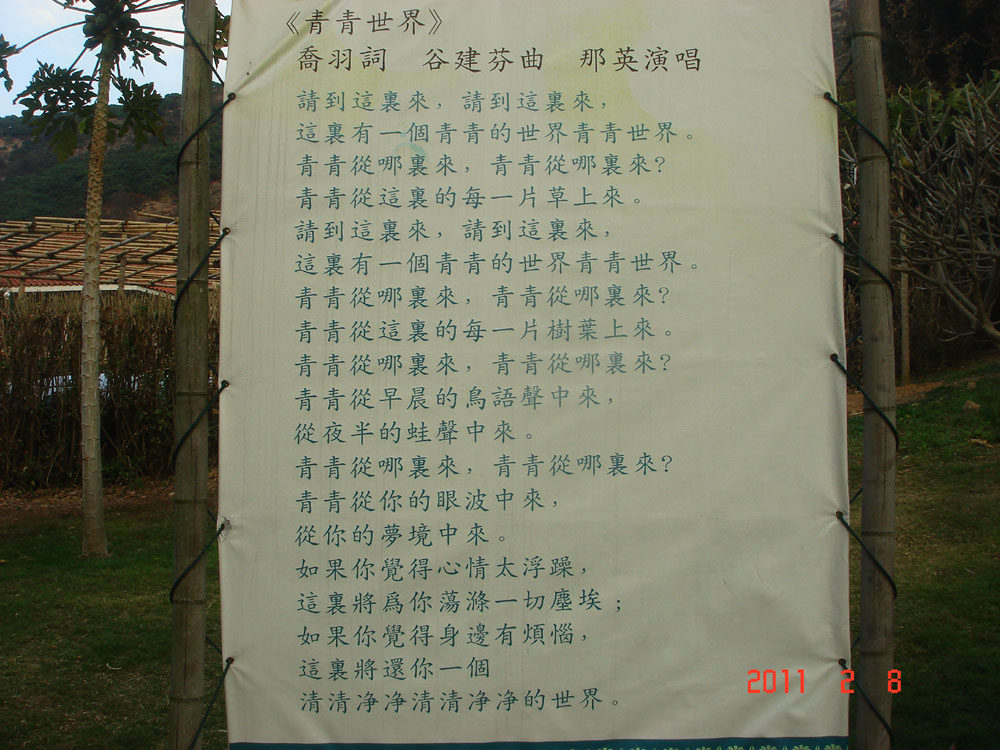 《青青世界》
喬羽詞 谷建芬曲 那英演唱
請到這裏來，請到這裏來，
這裏有一個青青的世界青青世界。
青青從哪裏來，青青從哪裏來？
青青從這裏的每一片草上來。
請到這裏來，請到這裏來，
這裏有一個青青的世界青青世界。
青青從哪裏來，青青從哪裏來？
青青從這裏的每一片樹葉上來。
青青從哪裏來，青青從哪裏來？
青青從早晨的鳥語聲中來，
從夜半的蛙聲中來。
青青從哪裏來，青青從哪裏來？
青青從你的眼波中來，
從你的夢境中來。
如果你覺得心情太浮躁，
這裏將爲你蕩滌一切塵埃；
如果你覺得身邊有煩惱，
這裏將還你一個
清清净净清清净净的世界。
2011 2 8